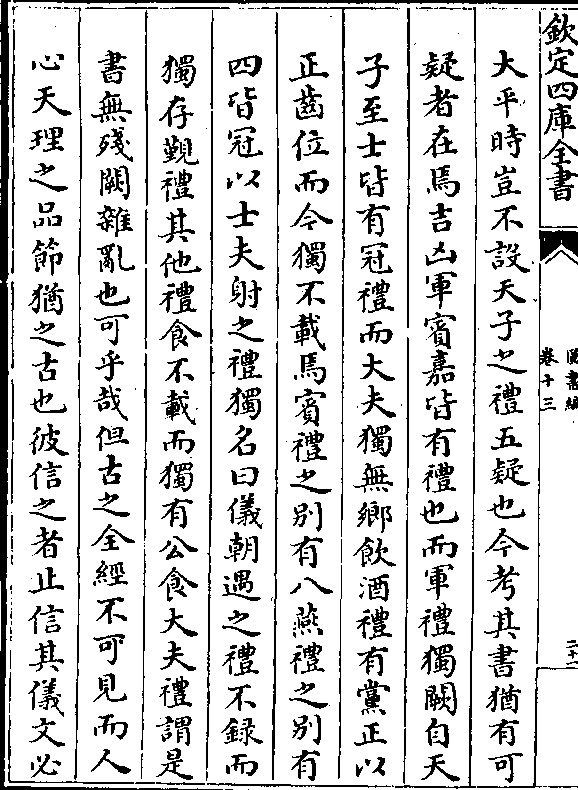 欽定四庫全書
圖書編
卷十三
大平時豈不設天子之禮五疑也今考其書猶有可
疑者在焉吉凶軍賓嘉皆有禮也而軍禮獨闕自天
子至士皆有冠禮而大夫獨無鄉飲酒禮有黨正以
正齒位而今獨不載焉賓禮之别有八燕禮之别有
四皆冠以士夫射之禮獨名曰儀朝遇之禮不録而
獨存覲禮其他禮食不載而獨有公食大夫禮謂是
書無殘闕雜亂也可乎哉但古之全經不可見而人
心天理之品節猶之古也彼信之者止信其儀文必